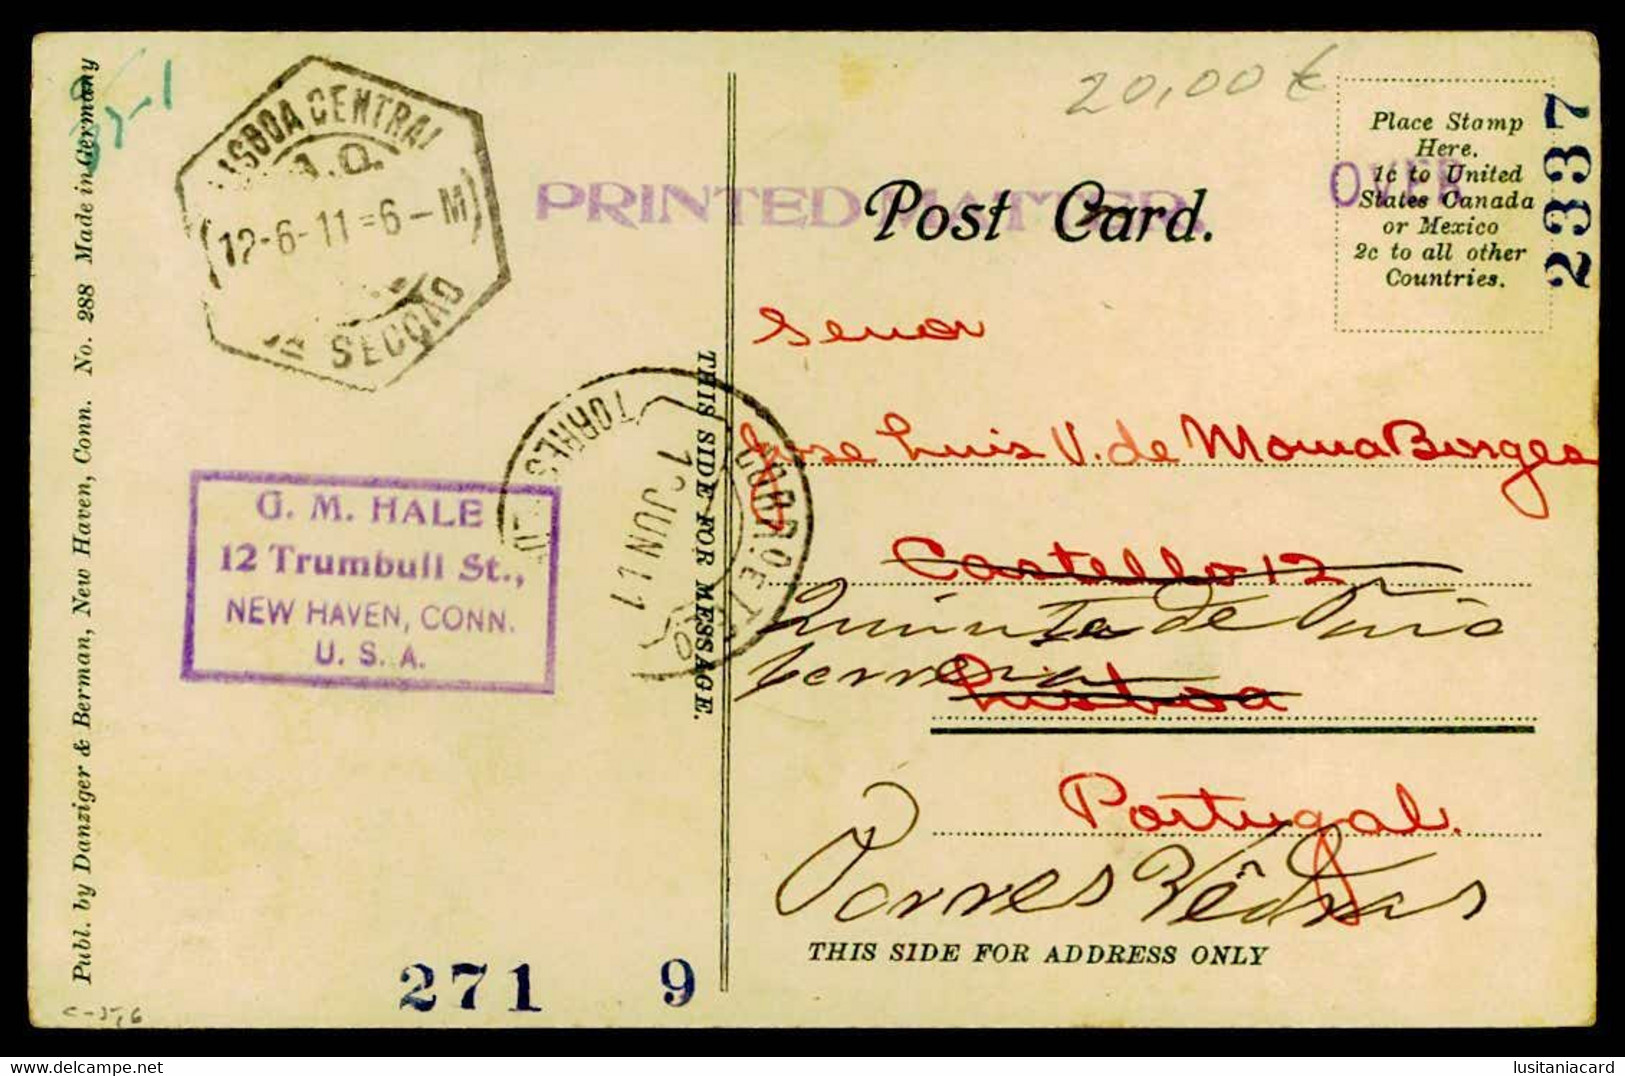 20,00 €
Place Stamp
Here.
1c to United
States Canada
or Mexico
2c to all other
Countries.
OVER
23337
LISBOA CENTRAL
(12-6-11=6-M)
SECÇÃO
PRINTED MATTER.
Post Card.
Publ. by Danziger & Berman, New Haven, Conn. No. 288 Made in Germany
THIS SIDE FOR MESSAGE.
TORRES VEDRAS
JUN 11
G. M. HALE
12 Trumbull St.,
NEW HAVEN, CONN.
U. S. A.
Senor
Jose Luis V. de Moura Borges
Castello 12
Quinta de
Lisboa
Portugal.
Torres Vêdras
THIS SIDE FOR ADDRESS ONLY
271 9
lusitaniacard